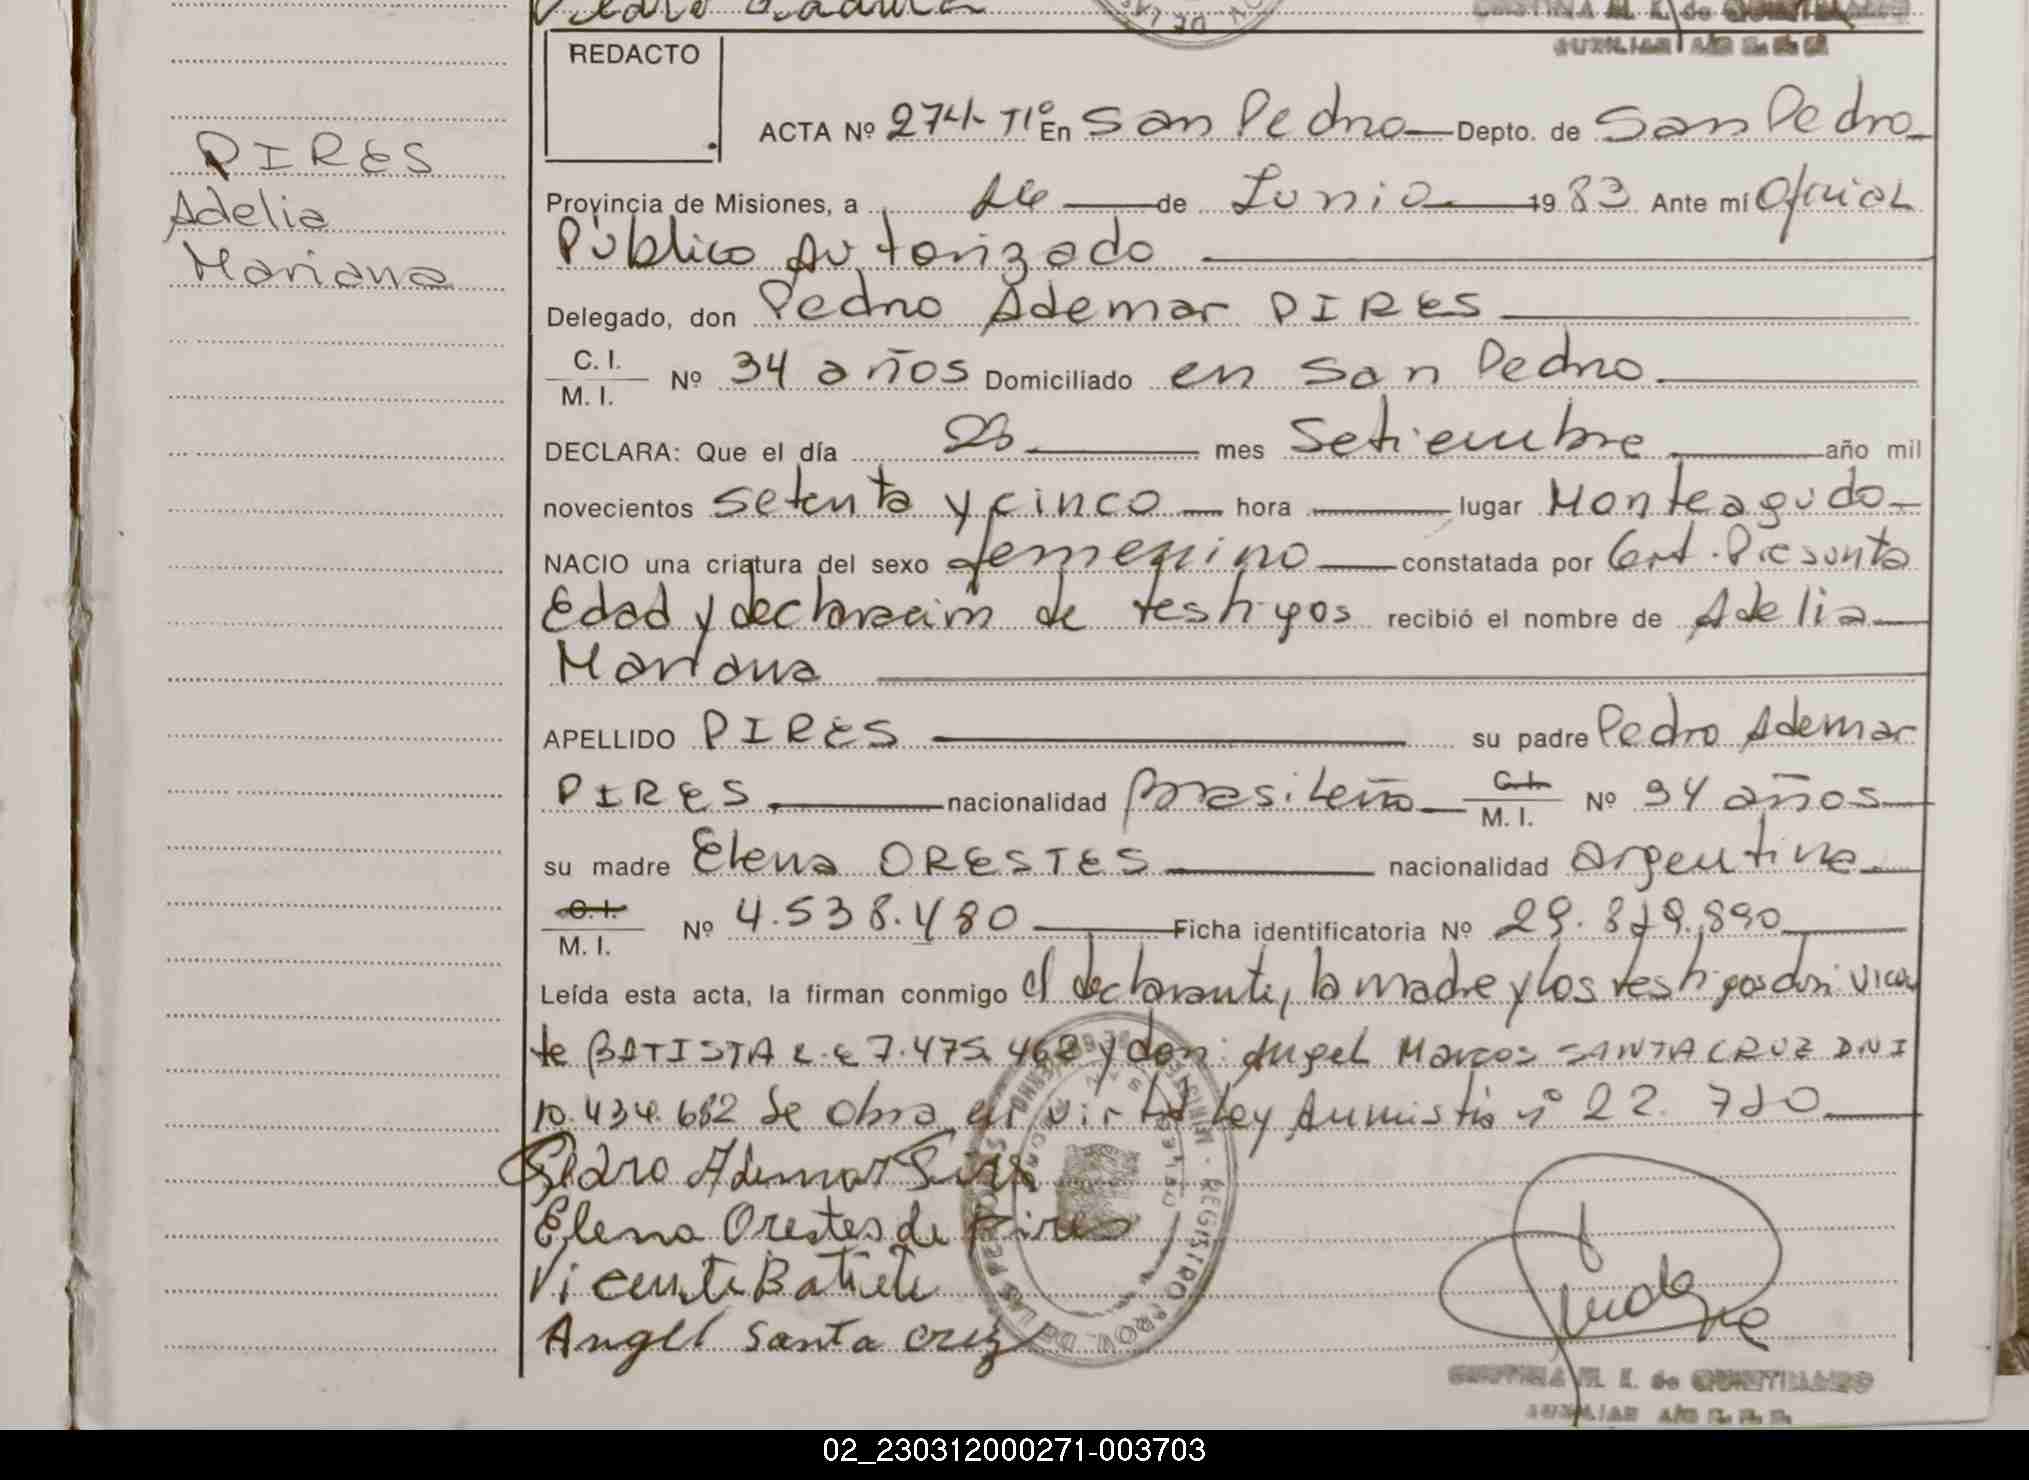 REDACTO
PIRES
Adelia
Mariana
ACTA Nº 274- Tº1 En San Pedro Depto. de San Pedro
Provincia de Misiones, a de Junio 1983 Ante mí Oficial
Público Autorizado
Delegado, don Pedro Ademar PIRES
C. I. / M. I. Nº 34 años Domiciliado en San Pedro
DECLARA: Que el día 23 mes Setiembre año mil
novecientos setenta y cinco hora lugar Monteagudo
NACIO una criatura del sexo femenino constatada por Cert. Presunta
Edad y declaración de testigos recibió el nombre de Adelia
Mariana
APELLIDO PIRES su padre Pedro Ademar
PIRES nacionalidad brasileña C. I. / M. I. Nº 34 años
su madre Elena ORESTES nacionalidad argentina
C. I. / M. I. Nº 4.538.480 Ficha identificatoria Nº
Leída esta acta, la firman conmigo el declarante, la madre y los testigos don: Vicen
te BATISTA L.E 7.475.462 y don: Angel Marcos SANTA CRUZ DNI
10.434.682 Se obra en virtud Ley Amnistia nº 22.710
Pedro Ademar Pires
Elena Orestes de Pires
Vicente Batista
Angel Santa Cruz
02_230312000271-003703